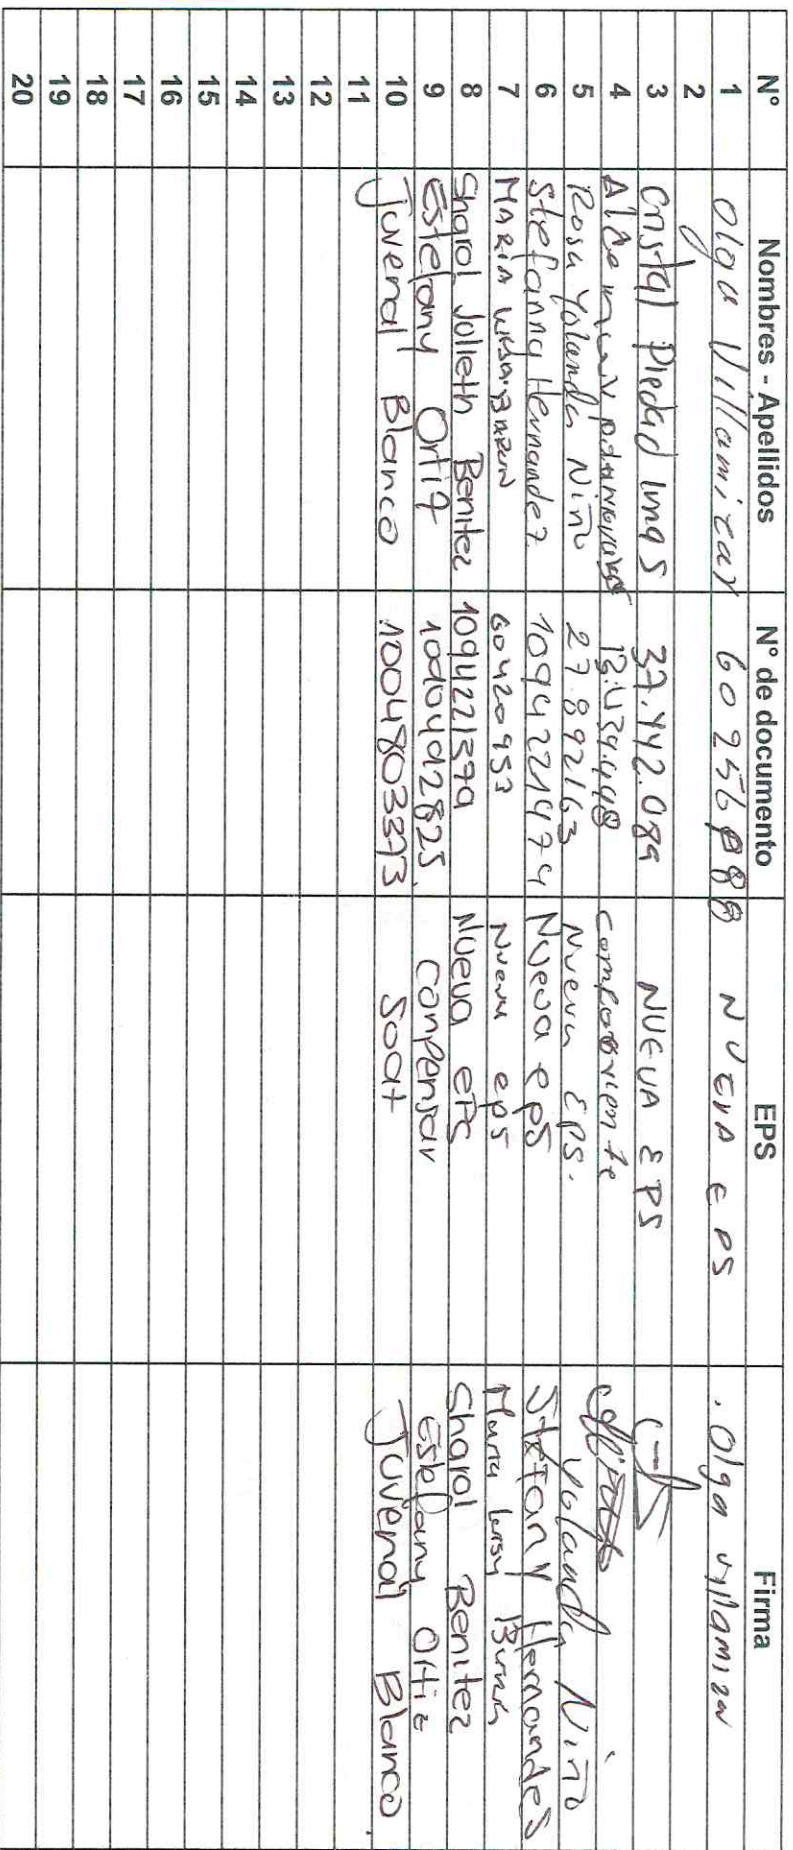 N° Nombres - Apellidos N° de documento EPS Firma
1 Olga Villamizar 60256888 NUEVA EPS . Olga Villamizar
2
3 Cristal Piedad 37.442.089 NUEVA EPS
4 13.439.448
5 Rosa Yolanda Niño 27.892163 Nueva EPS. Yolanda Niño
6 Stefanny Hernandez. 1094221974 Nueva eps Stefany Hernandes
7 MARIA 60420953 Nueva eps Maria
8 Sharol Julieth Benitez 1094221379 Nueva EPS Sharol Benitez
9 Estefany Ortiz 1090492825. Conpensar Estefany Ortiz
10 Juvenal Blanco 1004803373 Soat Juvenal Blanco.
11
12
13
14
15
16
17
18
19
20